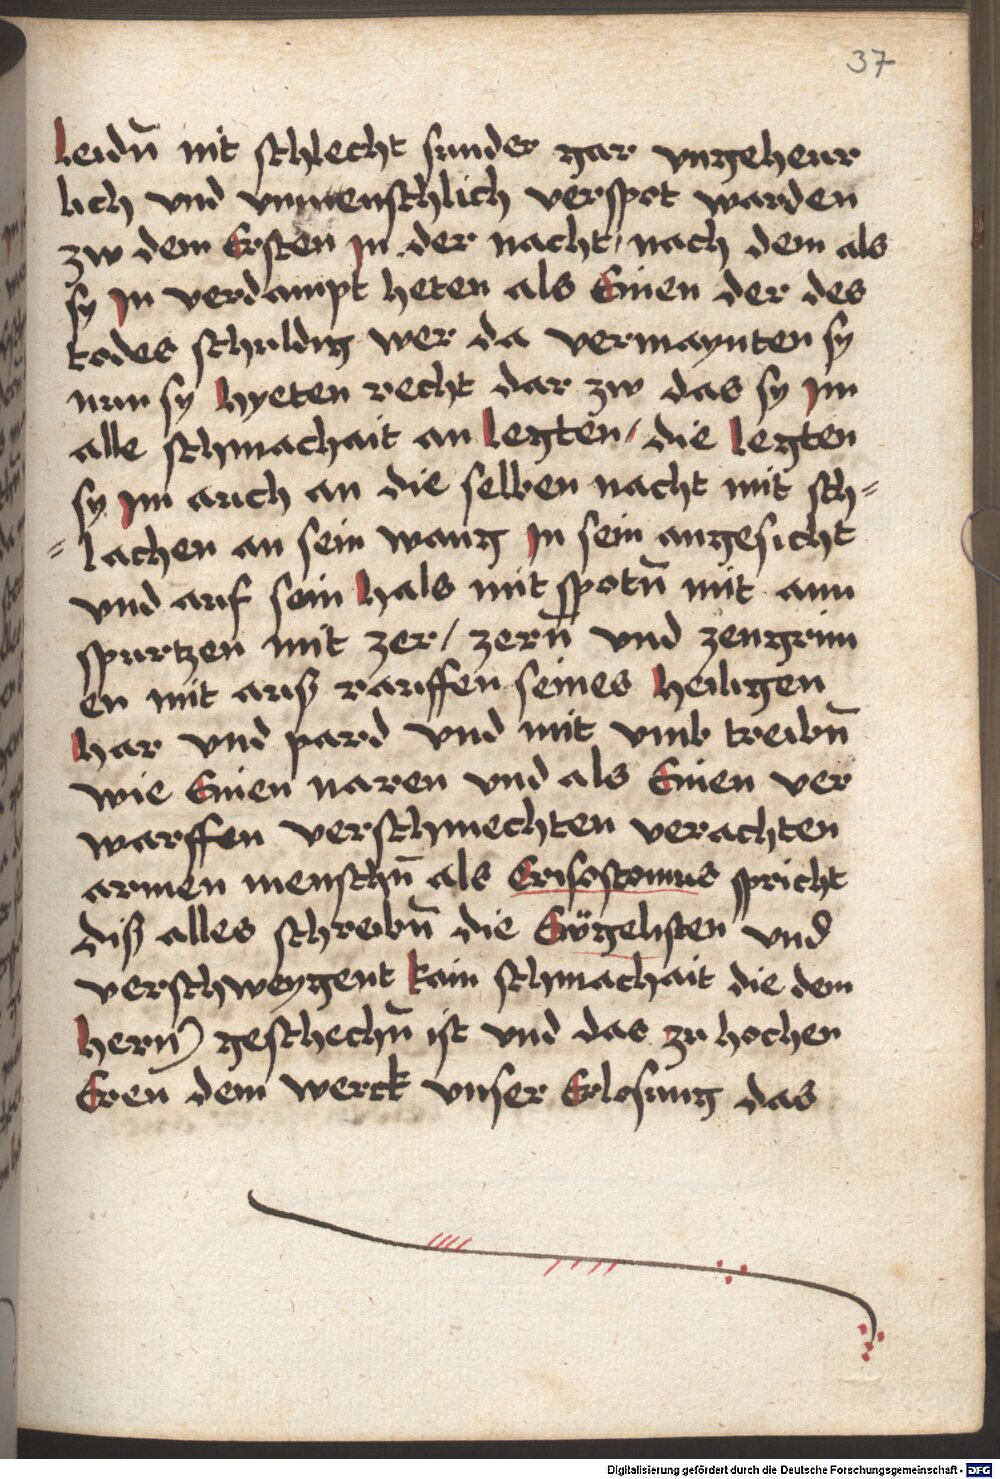 37
leidn̄ nit schlecht sunder gar vngeheur
lich vnd vnmenschlich verspot warden
zw dem Ersten jn der nacht / nach dem als
sy jn verdampt heten als Einen der des
todes schuldig wer da vermaynten sy
nun sy hyeten recht dar zw das sy jm
alle schmachait an legten / die legten
sy jm auch an die selben nacht mit sch=
=lachen an sein wang jn sein angesicht
vnd auf sein hals mit spotn̄ mit ann
spurtzen mit zer / zern̄ vnd zengrinn
en mit auß rauffen seines heiligen
har vnd pard vnd mit vmb treibn̄
wie Einen naren vnd als Einen ver
warffen verschmechten verachten
armen menschn̄ als Crisostomus spricht
diß alles schreibn̄ die Ewgelisten vnd
verschweygent kain schmachait die dem
hern̄ geschechn̄ ist vnd das zu hochen
Eren dem werck vnser Erlosung das
Digitalisierung gefördert durch die Deutsche Forschungsgemeinschaft - DFG